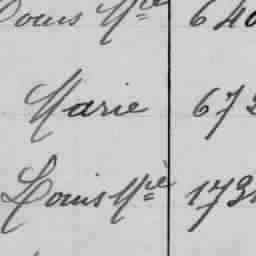 Louis Mie 640
Marie 673
Louis Mie 173